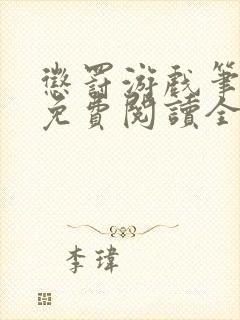 懲罰游戲筆
免費閱讀全
李瑋